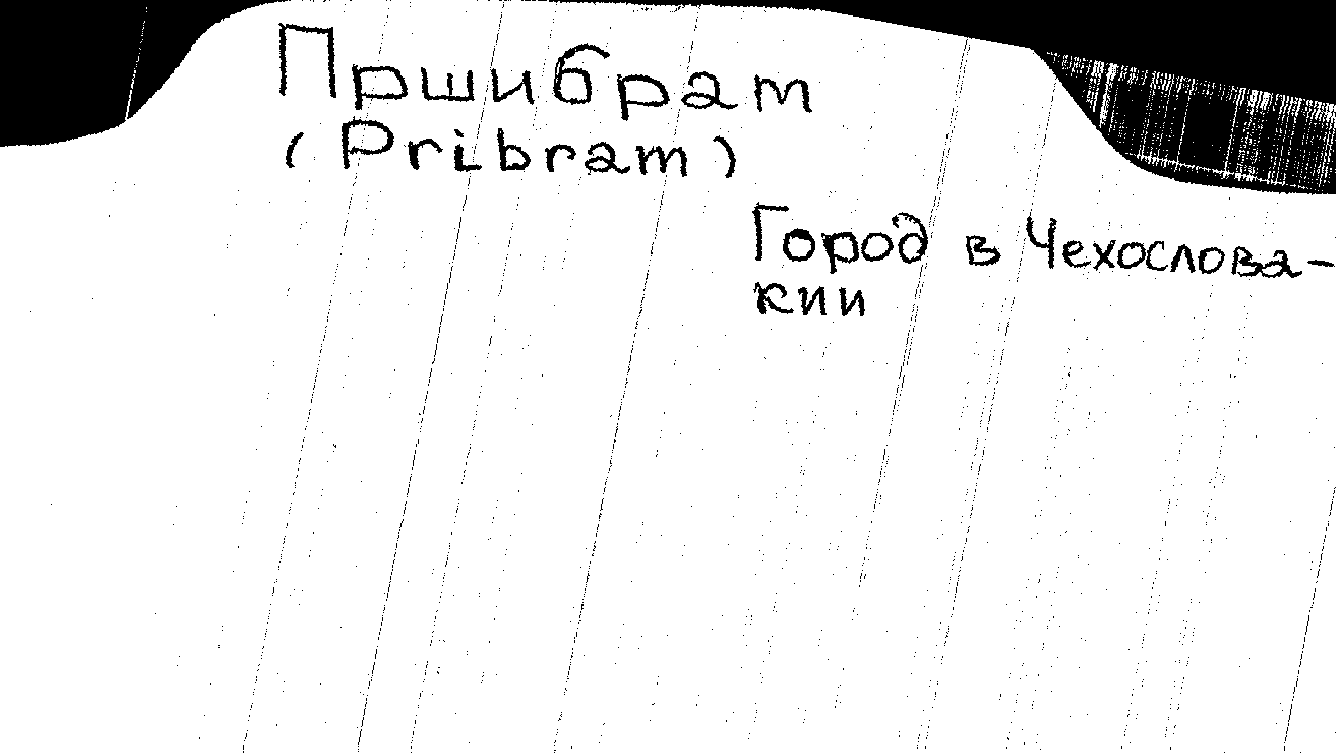 Пршибрам
(Pribram)
Город в Чехослова-
кии